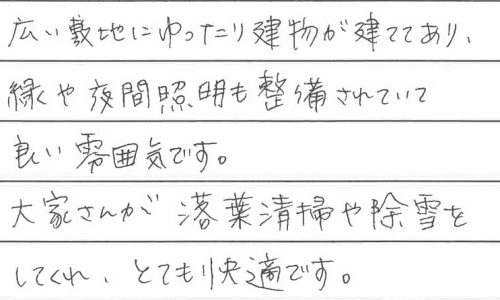 広い敷地にゆったり建物が建ててあり、
緑や夜間照明も整備されていて
良い雰囲気です。
大家さんが落葉清掃や除雪を
してくれ、とても快適です。